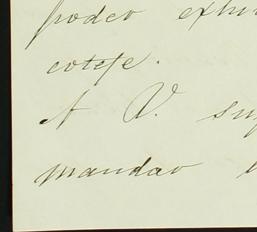 poder exhi
coteje.
A V. sup
mandar